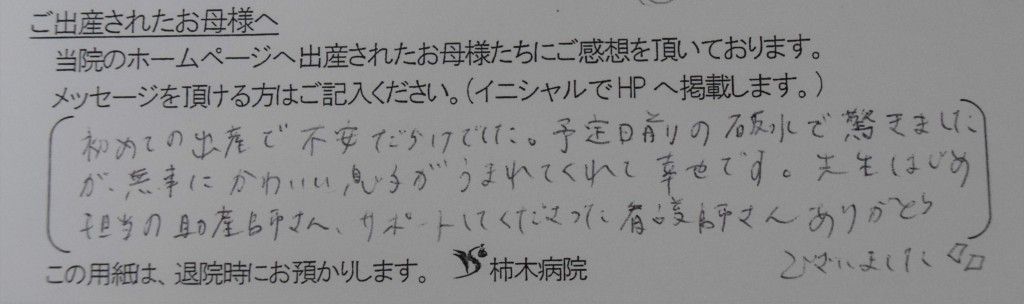 ご出産されたお母様へ
当院のホームページへ出産されたお母様たちにご感想を頂いております。
メッセージを頂ける方はご記入ください。(イニシャルでHPへ掲載します。)
初めての出産で不安だらけでした。予定日前の破水で驚きました
が、無事にかわいい息子がうまれてくれて幸せです。先生はじめ
担当の助産師さん、サポートしてくださった看護師さんありがとう
ございました
この用紙は、退院時にお預かりします。 柿木病院